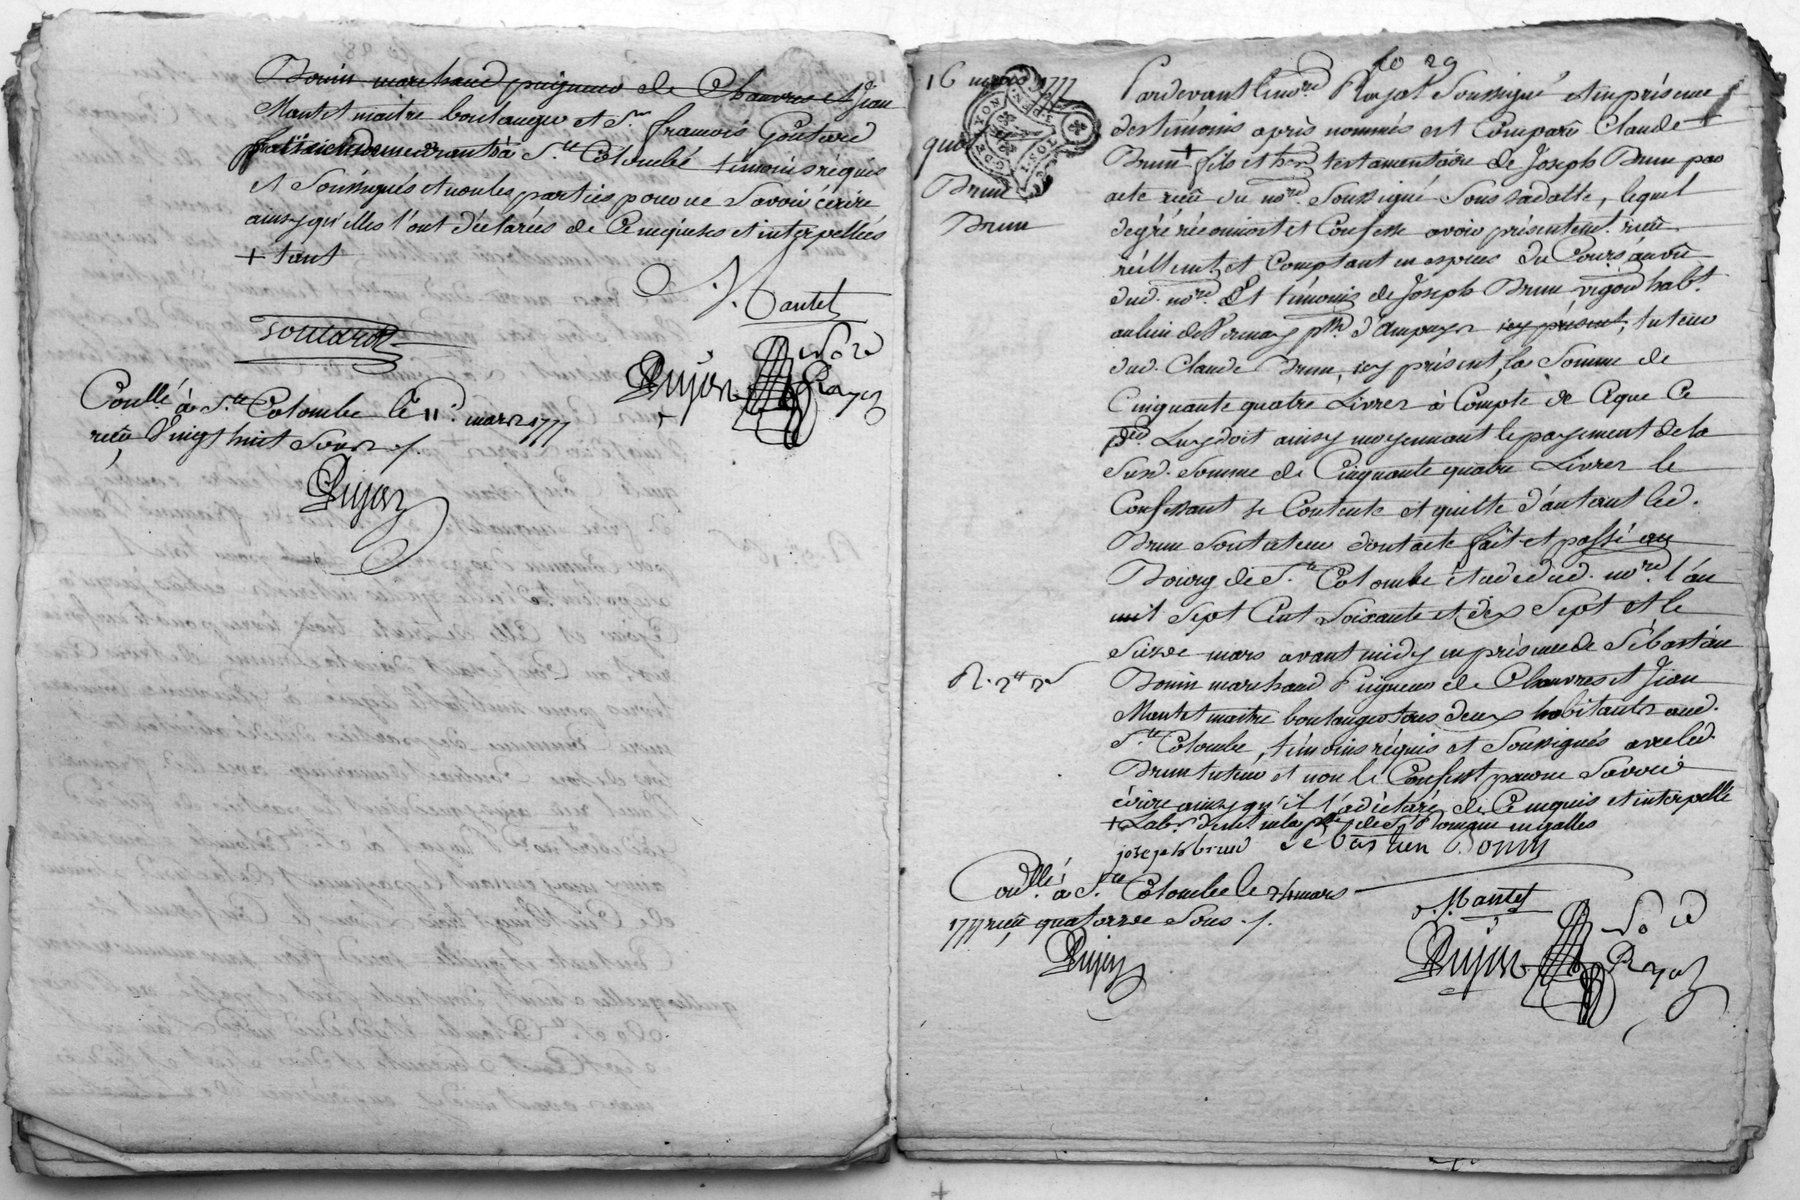 Bonin marchand peigneur de Chanvres et Jean
Mantet maitre boulanger et Sr. françois Goutard
demeurant à Ste Colombe témoins réquis
et Soussignés et non les parties pour ne Savoir écrire
ainsy qu'elles l'ont déclarées de Ce requises et interpellées
+ tant
J. Mantet
Goutard
Dujon
No re
Royal
Conllé à Ste Colombe le 11e mars 1777
reçu Vingt huit Sous ./.
Dujon
fo 29
16 mars 1777
quit
Brun
Brun
Pardevant le nore Royal Soussigné et en présence
des témoins après nommés est Comparu Claude
Brun + fils et her testamentaire de Joseph Brun par
acte reçu du nore. Soussigné Sous Sa datte, lequel
de gré réconnoit et Confesse avoir présentemt. reçu
réellemt. et Comptant en espèces du Cours, au vû
dud. nore. Et témoins de Joseph Brun vigon habt.
au lieu de Vernay psse. d'ampuys icy présent, tuteur
dud. Claude Brun, icy présent, la Somme de
Cinquante quatre Livres à Compte de Ceque Ce
dud Luy doit ainsy moyennant le payement de la
Susd. Somme de Cinquante quatre Livres le
Confessant Se Contente et quitte d'autant led.
Brun Son tuteur dont acte fait et passé au
Bourg de Ste Colombe étude dud. nore. l'an
mil Sept Cent Soixante et dix Sept et le
Seize mars avant midy en présence de Sébastien
Bonin marchand Peigneur de Chanvres et Jean
Mantet maitre boulanger tous deux habitants aud.
Ste Colombe, témoins réquis et Soussignés avec led.
Brun tuteur et non le Confesst pour ne Savoir
écrire ainsy qu'il l'a déclaré de Ce requis et interpellé
+ Labr. demt. en la psse de St Romain en galles
joseph brun Sebastien Bonin
Conllé à Ste Colombe le 24 mars
1777 reçu quatorze Sous ./.
Dujon
J. Mantet
Dujon
No re
Royal